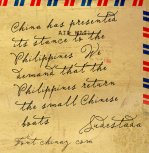 China has presented
its stance to the
AIR MAIL
Philippines We
demand that the
Philippines return
the small Chinese
boats
Judestada
font.chinaz.com